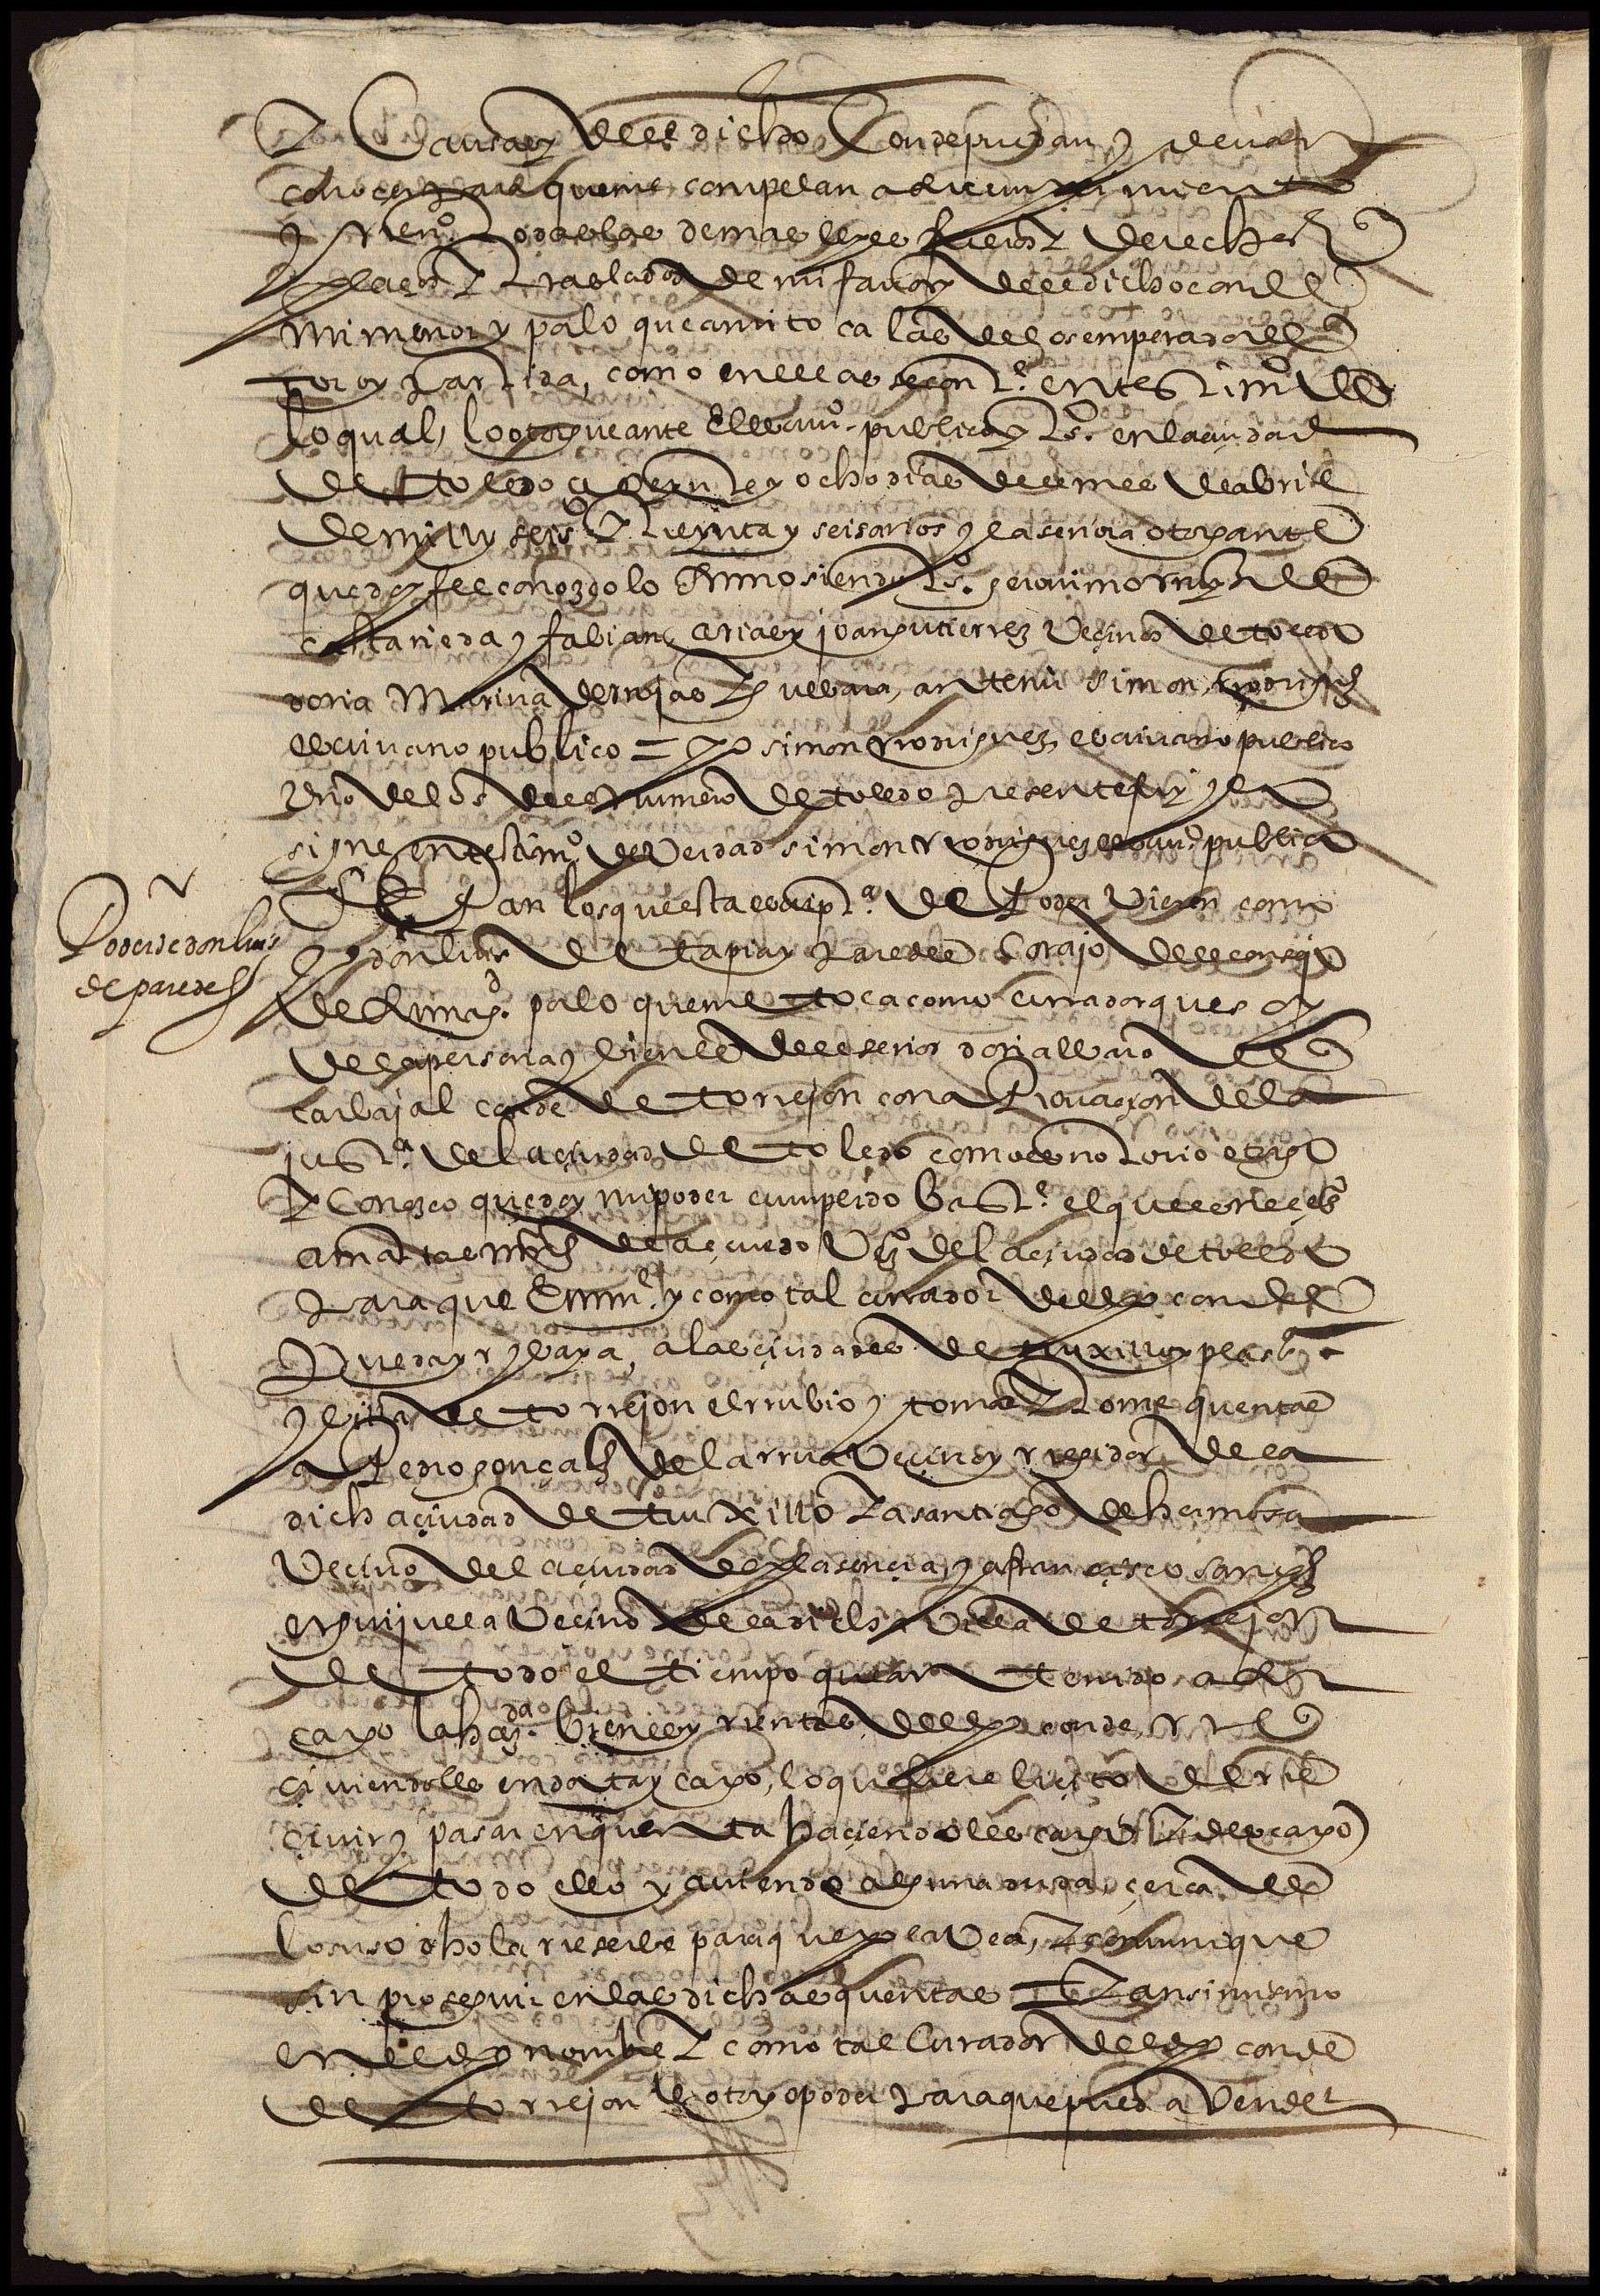 causas del dicho conde puedan y devan
conocer para que me compelan a su cumplimiento
y renº todas las demas leyes fueros y derechos
y traslados de mi favor y del dicho conde
mi menor y por lo que a mi toca las de los emperadores
toro y partida, como en ellas se contᵉ. en testimº de
lo qual, lo otorgue ante el escrivº. publico y tsº. en la ciudad
de toledo a veynte y ocho dias del mes de abril
de mill y seisº y treynta y seis años y la señora otorgante
que doy fee conozco lo firmo siendo tsº. geronimo rruyz de
castañeda y fabian arias y joan gutierrez vecinos de toledo
doña Marina de rrojas y guebara, ante mi simon rrodrigz
escrivano publico = yo simon rrodriguez escrivano publico
uno de los del numero de toledo presente fuy y lo
signe en testimº de verdad simon rrodriguez escrivº publico
Poder de don luis
de paredes
Sepan los que esta escriptª. de poder vieren como
yo don luis de tapia y paredes corajo del consejo
de su magᵈ. por lo que me toca como curador que soy
de la persona y bienes del señor don albaro de
carbajal conde de torrejon con aprovacion de la
justª. de la ciudad de toledo como es notorio otorgo
y conozco que doy mi poder cumplido bastᵉ. el que es necesº
a matias mrz de acevedo vzº de la ciudad de toledo
para que en mi nᵉ. y como tal curador del dho conde
pueda yr y vaya, a las ciudades de truxillo y plasª
y villa de torrejon el rrubio y tomar y tome quentas
a Pedro gonçalz de la rrua vecino y rregidor de la
dicha ciudad de truxillo y a santiago de hermosa
vecino de la ciudad de plasencia y a francisco sanchz
orguijuela vecino de la dicha villa de torrejon
de todo el tiempo que an tenido a su
cargo la hazᵈᵃ. bienes y rrentas del dho conde, rre
civiendoles en data y cargo, lo que fuere justo de rre
civir y pasar en quenta haciendoles cargo y descargo
de todo ello y aviendo alguna duda, cerca de
lo suso dho la rreserbe para que yo la vea, y comunique
sin proseguir en las dichas quentas y ansimismo
en el dho nombre y como tal curador del dho conde
de torrejon le otorgo poder para que pueda vender